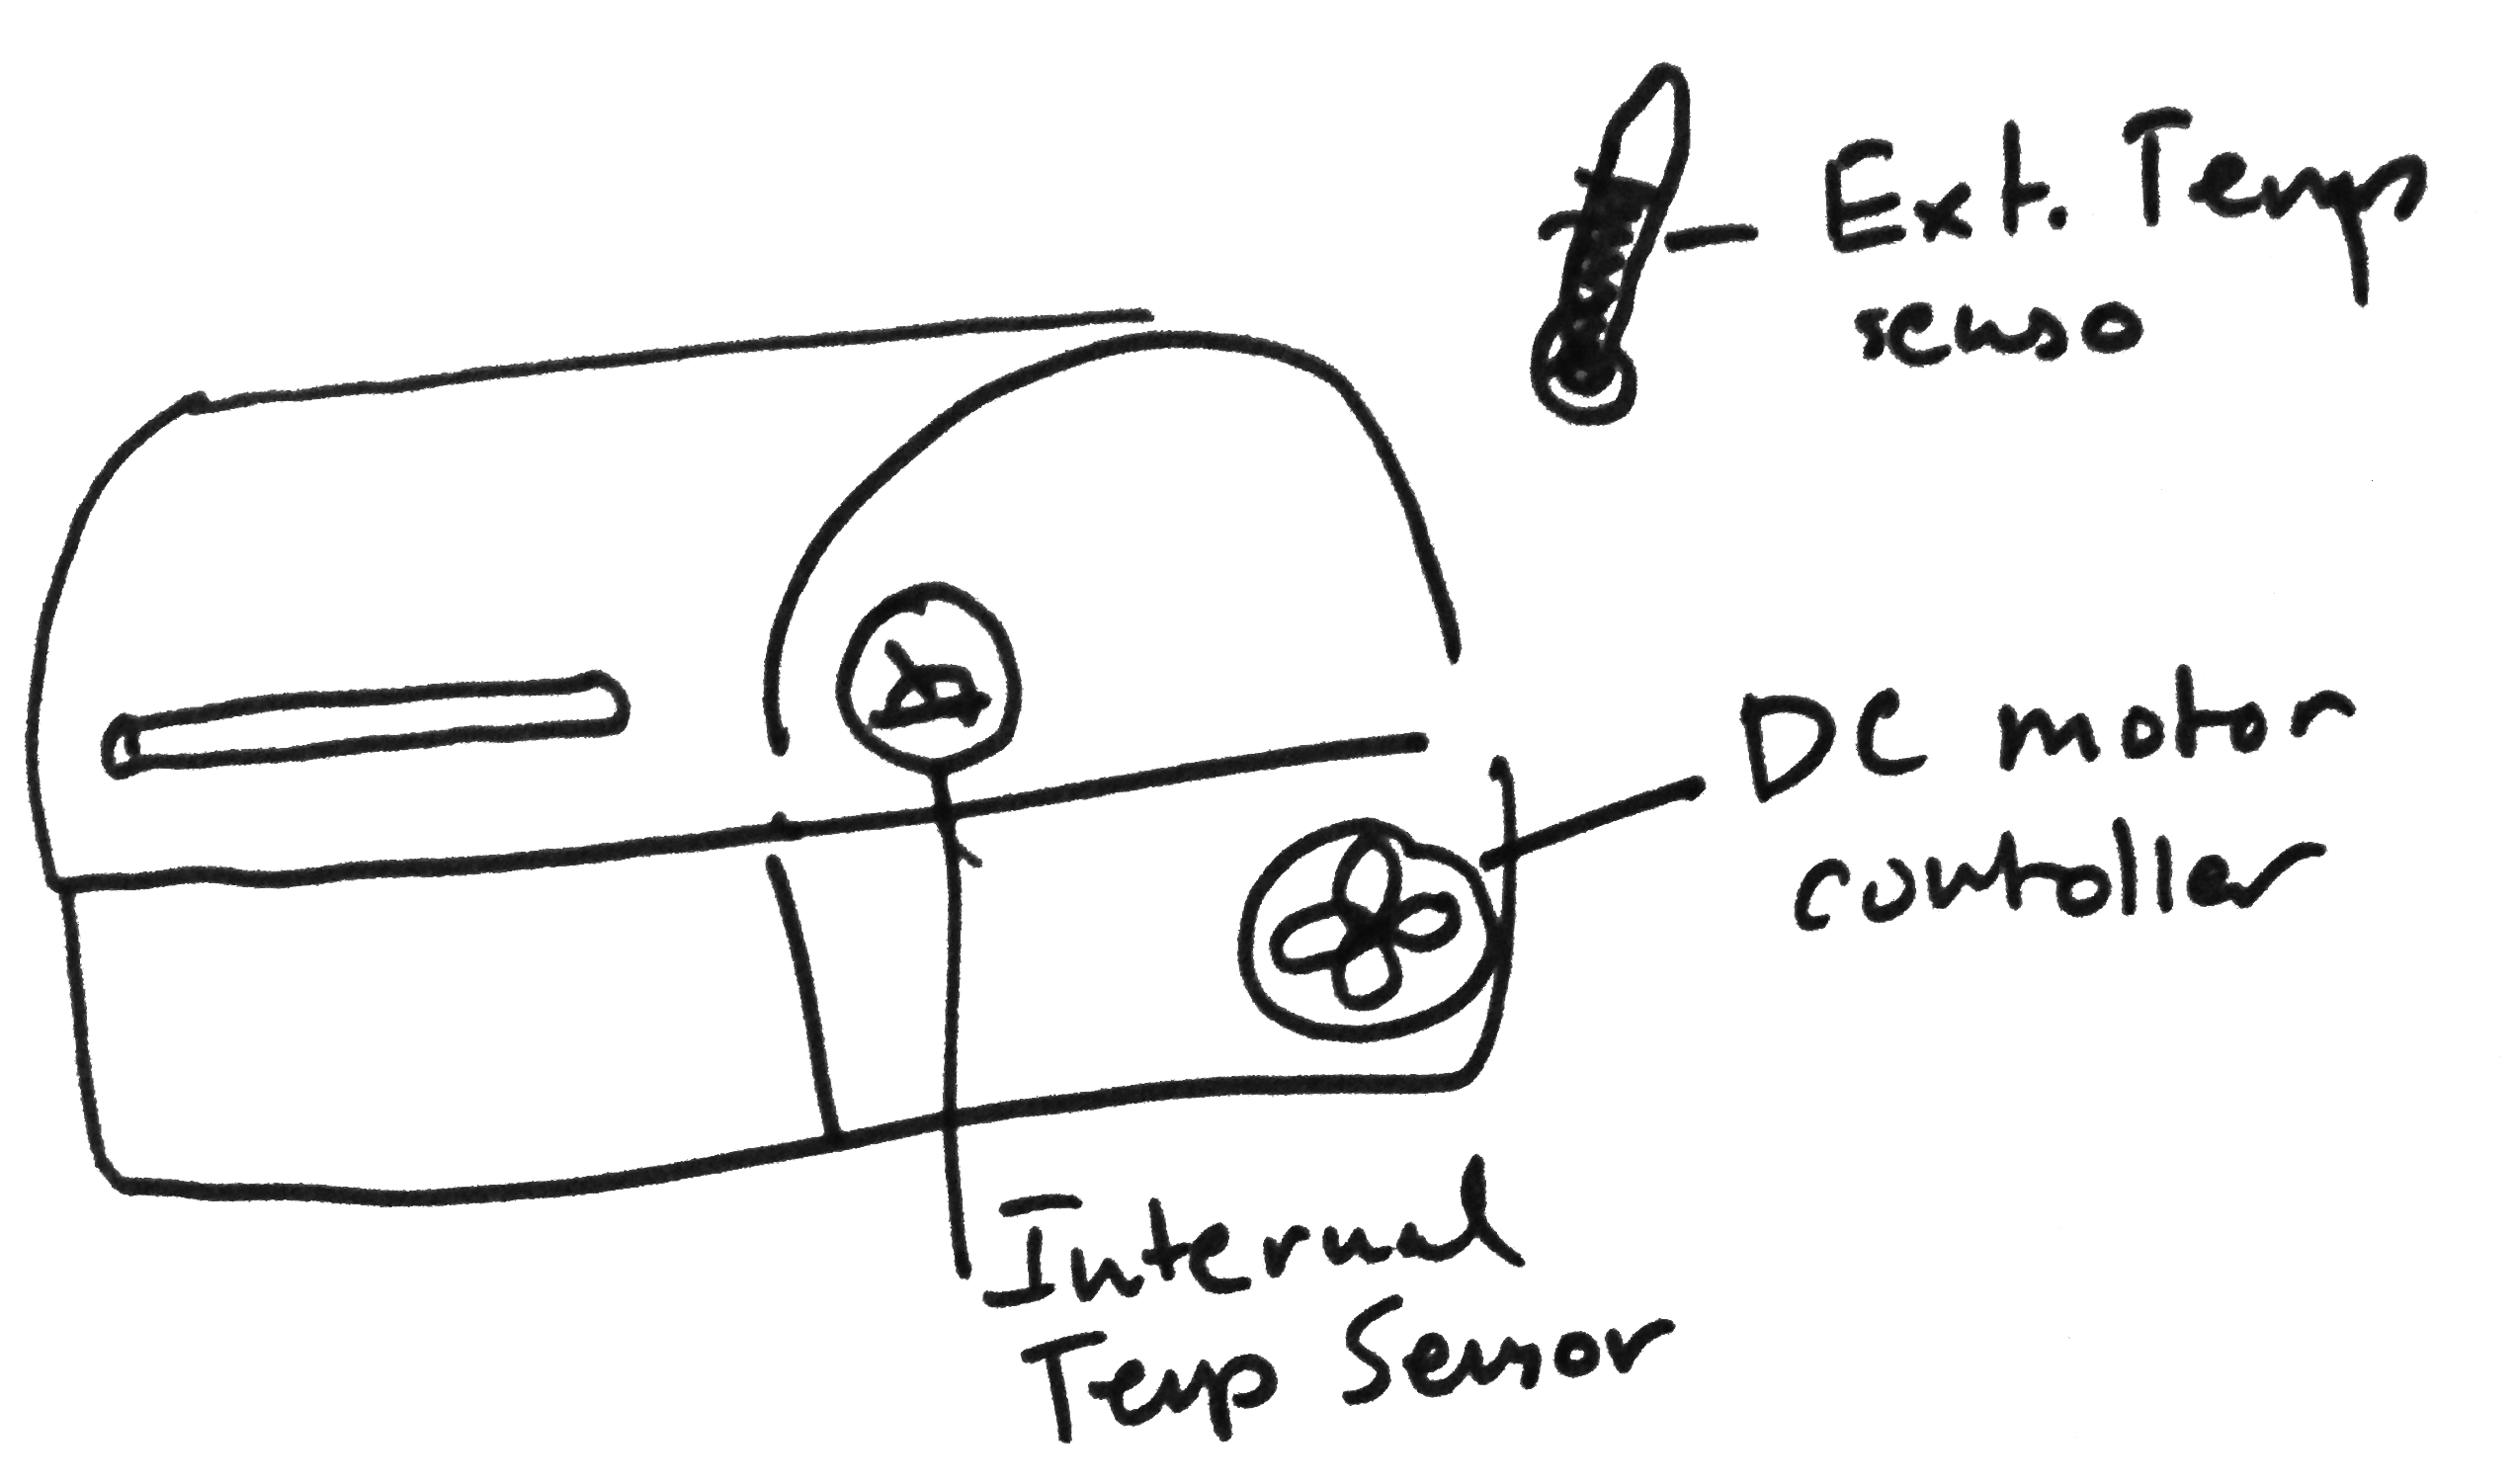 Ext. Temp
senso
DC motor
contoller
Internal
Temp Sensor